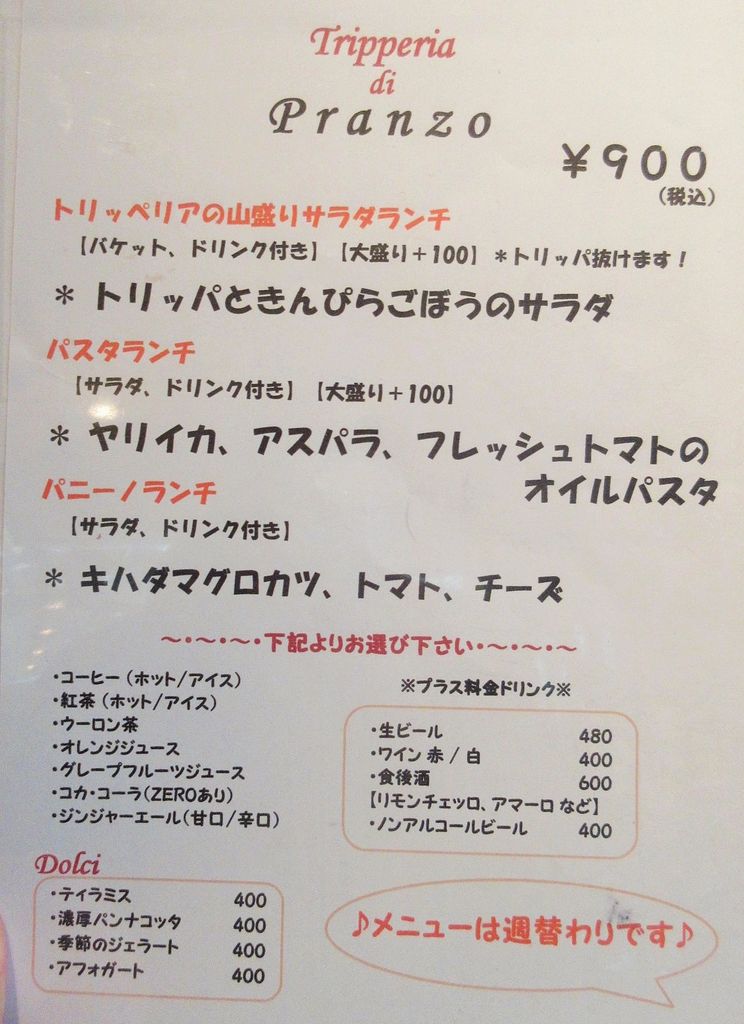 Tripperia
di
Pranzo
¥900
(税込)
トリッペリアの山盛りサラダランチ
【バケット、ドリンク付き】【大盛り+100】*トリッパ抜けます！
* トリッパときんぴらごぼうのサラダ
パスタランチ
【サラダ、ドリンク付き】【大盛り+100】
* ヤリイカ、アスパラ、フレッシュトマトの
オイルパスタ
パニーノランチ
【サラダ、ドリンク付き】
* キハダマグロカツ、トマト、チーズ
～・～・～・下記よりお選び下さい・～・～・～
・コーヒー（ホット/アイス）
・紅茶（ホット/アイス）
・ウーロン茶
・オレンジジュース
・グレープフルーツジュース
・コカ・コーラ(ZEROあり)
・ジンジャーエール(甘口/辛口)
※プラス料金ドリンク※
・生ビール 480
・ワイン 赤 / 白 400
・食後酒 600
【リモンチェッロ、アマーロ など】
・ノンアルコールビール 400
Dolci
・ティラミス 400
・濃厚パンナコッタ 400
・季節のジェラート 400
・アフォガート 400
♪メニューは週替わりです♪